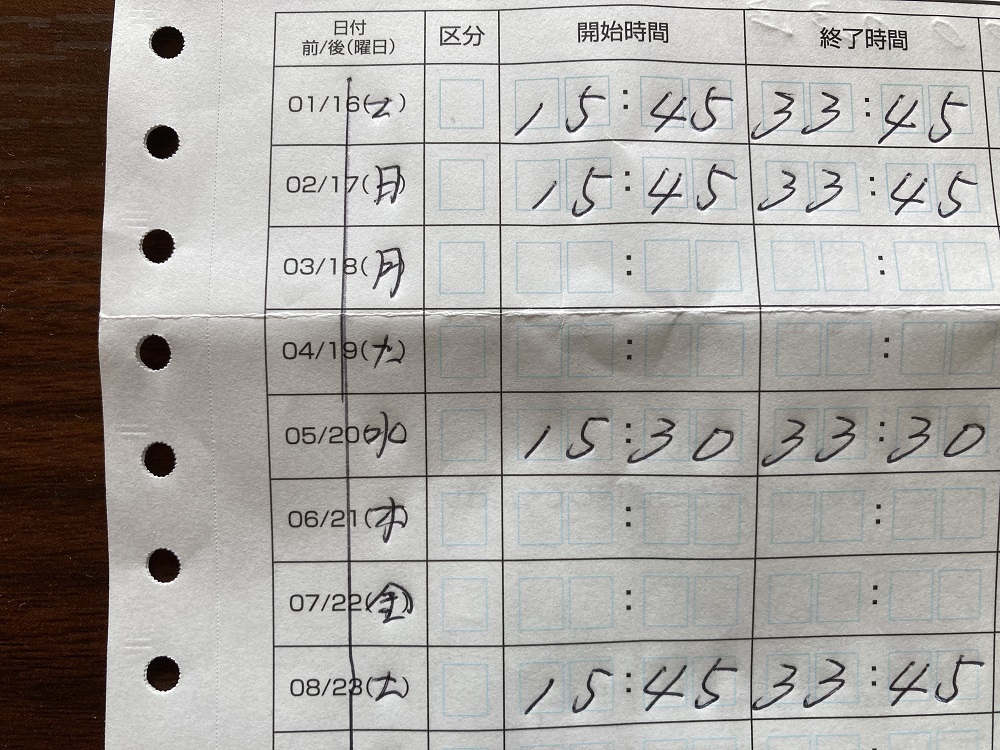 日付
前/後(曜日) 区分 開始時間 終了時間
01/16(土) 15:45 33:45
02/17(日) 15:45 33:45
03/18(月) : :
04/19(火) : :
05/20(水) 15:30 33:30
06/21(木) : :
07/22(金) : :
08/23(土) 15:45 33:45